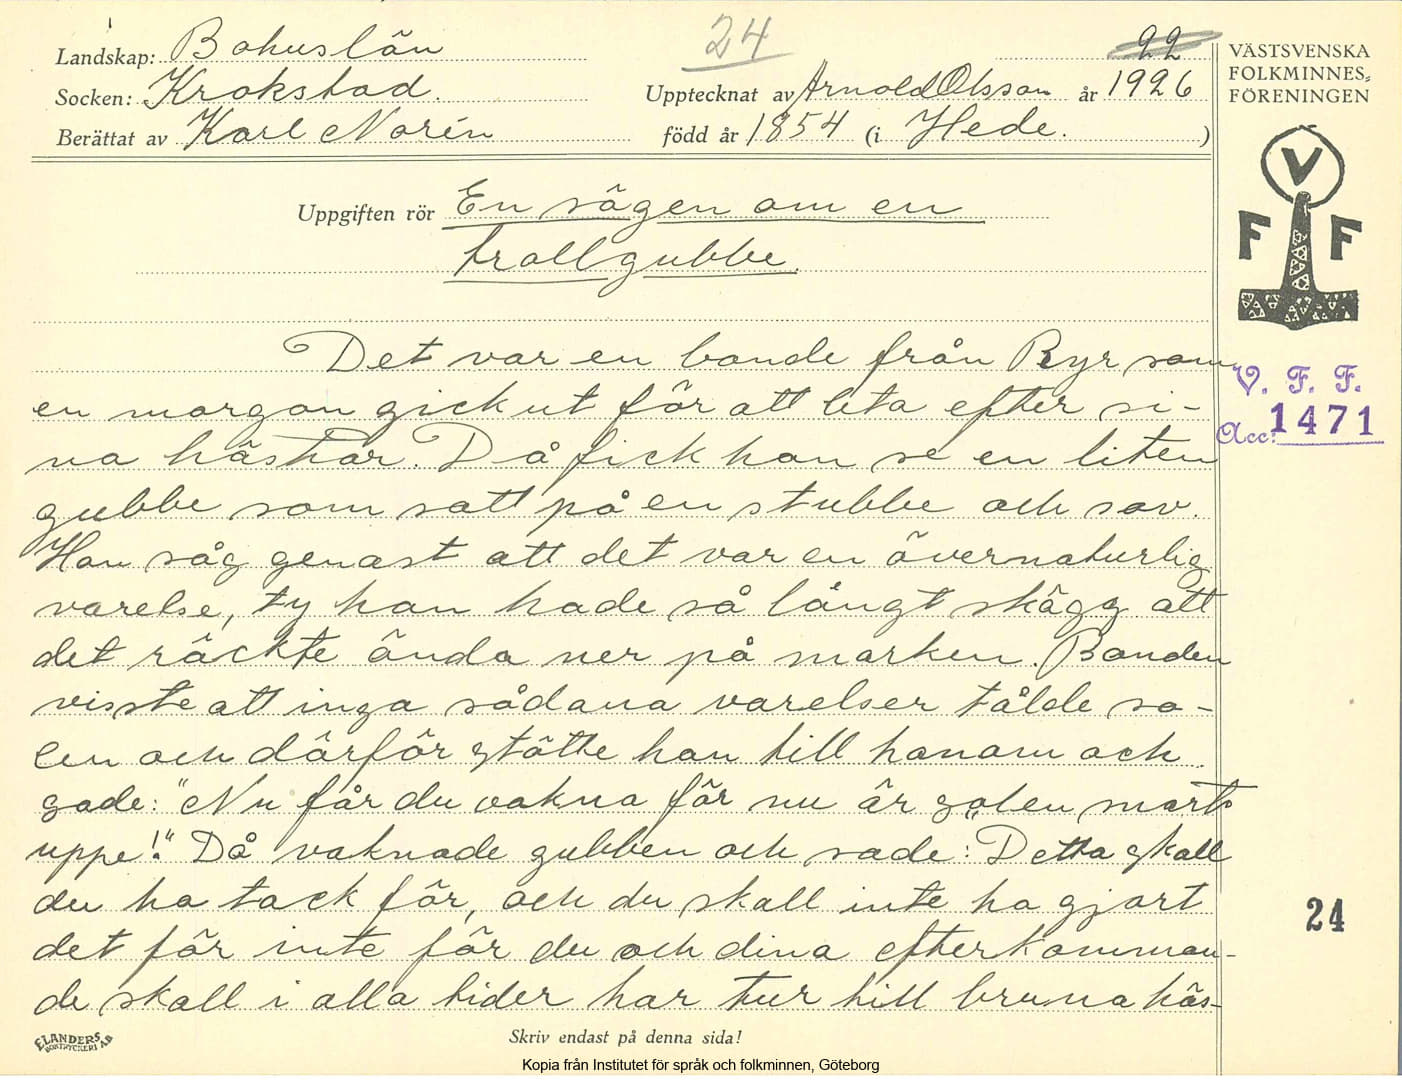 Landskap: Bohuslän
24
22
Socken: Krokstad.
Upptecknat av Arnold Olsson år 1926
Berättat av Karl Norén
född år 1854 (i Hede. )
VÄSTSVENSKA
FOLKMINNES-
FÖRENINGEN
V
F F
Uppgiften rör En sägen om en
trollgubbe.
V. F. F.
Acc: 1471
Det var en bonde från Ryr som
en morgon gick ut för att leta efter si-
na hästar. Då fick han se en liten
gubbe som satt på en stubbe och sov.
Han såg genast att det var en övernaturlig
varelse, ty han hade så långt skägg att
det räckte ända ner på marken. Bonden
visste att inga sådana varelser tålde so-
len och därför stötte han till honom och
sade: "Nu får du vakna för nu är solen snart
uppe!" Då vaknade gubben och sade: "Detta skall
du ha tack för, och du skall inte ha gjort
det för inte för du och dina efterkomman-
de skall i alla tider har tur till bruna häs-
24
ELANDERS
BOKTRYCKERI AB
Skriv endast på denna sida!
Kopia från Institutet för språk och folkminnen, Göteborg